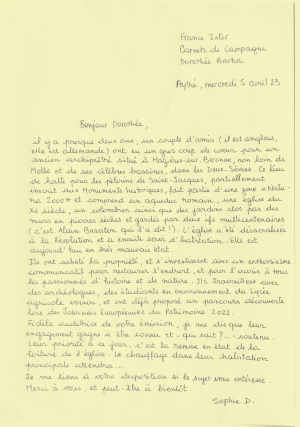 France Inter
Carnets de Campagne
Dorothée Barba
mercredi 5 avril 23
Bonjour Dorothée,
il y a presque deux ans, un couple d'amis (il est anglais,
elle est allemande) ont eu un gros coup de cœur pour un
ancien archiprêtré situé à Mazières-sur-Béronne, non loin de
Melle et de ses célèbres baudets, dans les Deux-Sèvres. Ce lieu
de halte pour les pèlerins de Saint-Jacques, partiellement
inscrit aux Monuments historiques, fait partie d'une zone « Natu-
ra 2000 » et comprend un aqueduc romain, une église du
XIe siècle, un colombier ainsi que des jardins clos par des
murs en pierres sèches et gardés par deux ifs multicentenaires
(c'est Alain Baraton qui l'a dit !). L'église a été désacralisée
à la Révolution et a ensuite servi d'habitation. Elle est
aujourd'hui en très mauvais état.
Ils ont acheté la propriété, et s'investissent avec un enthousiasme
communicatif pour restaurer l'endroit, et pour l'ouvrir à tous
les passionnés d'histoire et de nature. Ils travaillent avec
des archéologues, des étudiants en environnement du lycée
agricole voisin, et ont déjà proposé un parcours découverte
lors des Journées Européennes du Patrimoine 2022.
Fidèle auditrice de votre émission, je me dis que leur
engagement gagne à être connu et - qui sait ? - soutenu.
Leur priorité à ce jour, c'est la remise en état de la
toiture de l'église. Le chauffage dans leur habitation
principale attendra...
Je me tiens à votre disposition si le sujet vous intéresse.
Merci à vous, et peut-être à bientôt.
Sophie D.